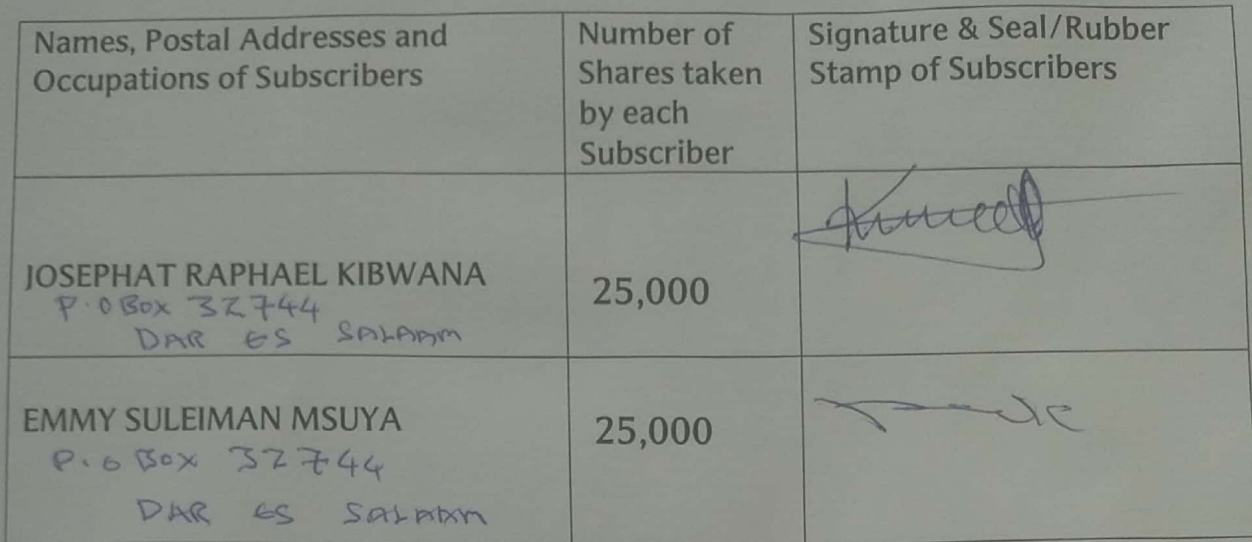 Names, Postal Addresses and
Occupations of Subscribers
Number of
Shares taken
by each
Subscriber
Signature & Seal/Rubber
Stamp of Subscribers
JOSEPHAT RAPHAEL KIBWANA
P.O Box 32744
DAR ES SALAAM
25,000
EMMY SULEIMAN MSUYA
P.O Box 32744
DAR ES SALAAM
25,000